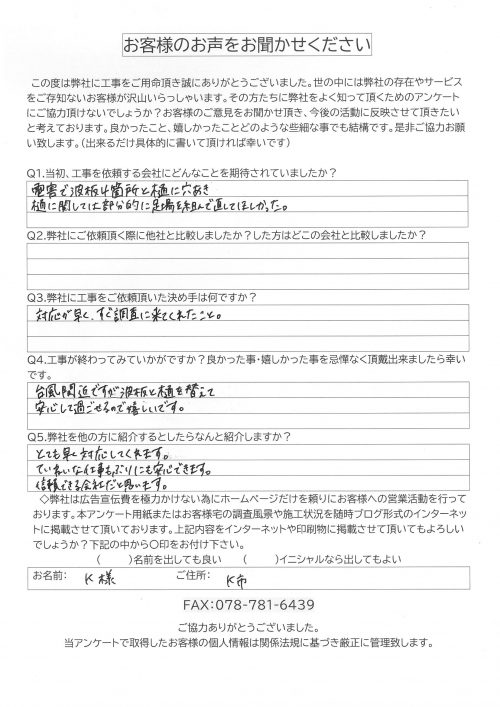 お客様のお声をお聞かせください
この度は弊社に工事をご用命頂き誠にありがとうございました。世の中には弊社の存在やサービス
をご存知ないお客様が沢山いらっしゃいます。その方たちに弊社をよく知って頂くためのアンケート
にご協力頂けないでしょうか？お客様のご意見をお聞かせ頂き、今後の活動に反映させて頂きたい
と考えております。良かったこと、嬉しかったことどのような些細な事でも結構です。是非ご協力お願
い致します。(出来るだけ具体的に書いて頂ければ幸いです)
Q1.当初、工事を依頼する会社にどんなことを期待されていましたか？
雹害で波板4箇所と樋に穴あき
樋に関しては部分的に足場を組んで直してほしかった。
Q2.弊社にご依頼頂く際に他社と比較しましたか？した方はどこの会社と比較しましたか？
Q3.弊社に工事をご依頼頂いた決め手は何ですか？
対応が早く、すぐ調査に来てくれたこと。
Q4.工事が終わってみていかがですか？良かった事・嬉しかった事を忌憚なく頂戴出来ましたら幸い
です。
台風間近ですが波板と樋を替えて
安心して過ごせるので嬉しいです。
Q5.弊社を他の方に紹介するとしたらなんと紹介しますか？
とても早く対応してくれます。
ていねいな仕事ぶりにも安心できます。
信頼できる会社だと思います。
◇弊社は広告宣伝費を極力かけない為にホームページだけを頼りにお客様への営業活動を行って
おります。本アンケート用紙またはお客様宅の調査風景や施工状況を随時ブログ形式のインターネッ
トに掲載させて頂いております。上記内容をインターネットや印刷物に掲載させて頂いてもよろしい
でしょうか？下記の中から〇印をお付け下さい。
(　　)名前を出しても良い　(　　)イニシャルなら出してもよい
お名前：　K様　ご住所：　K市
FAX:078-781-6439
ご協力ありがとうございました。
当アンケートで取得したお客様の個人情報は関係法規に基づき厳正に管理致します。